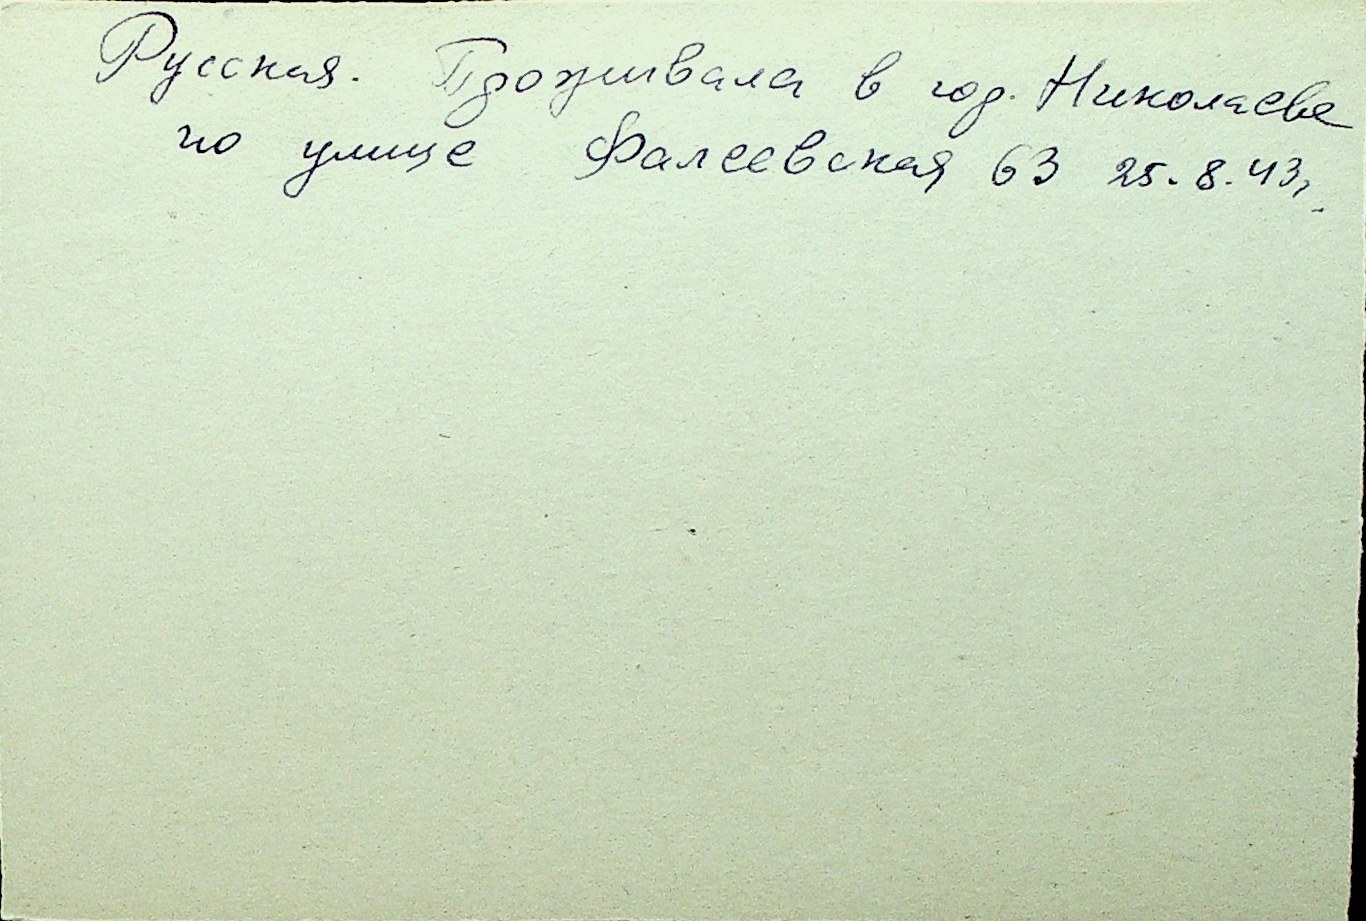 Русская. Проживала в гор. Николаеве
по улице Фалеевская 63 25.8.43г.